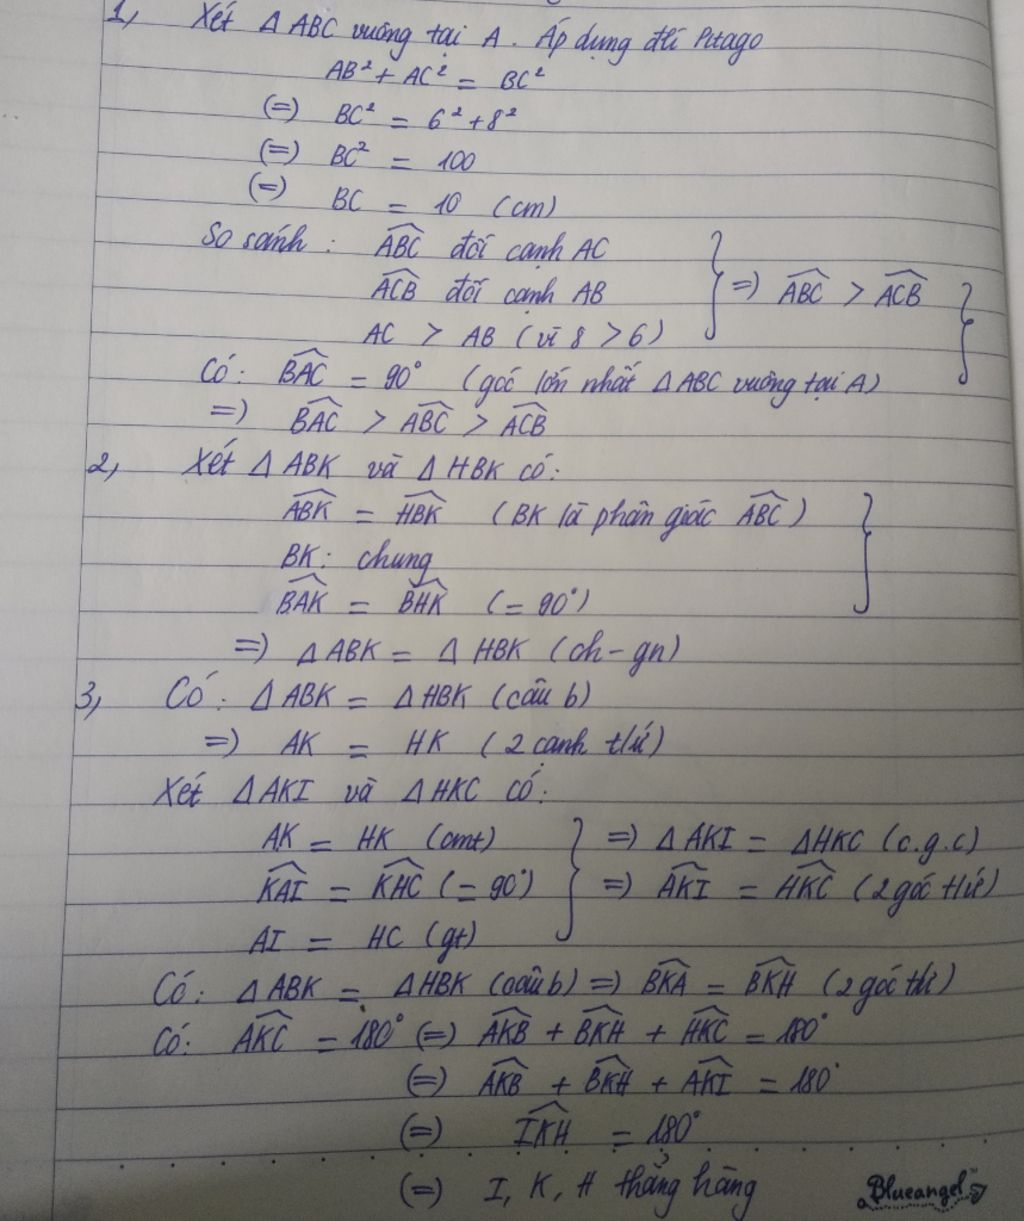 1, Xét Δ ABC vuông tại A. Áp dụng đlí Pitago
AB² + AC² = BC²
(=) BC² = 6² + 8²
(=) BC² = 100
(=) BC = 10 (cm)
So sánh: \widehat{ABC} đối cạnh AC
\widehat{ACB} đối cạnh AB } =) \widehat{ABC} > \widehat{ACB} }
AC > AB (vì 8 > 6)
Có: \widehat{BAC} = 90° (góc lớn nhất Δ ABC vuông tại A)
=) \widehat{BAC} > \widehat{ABC} > \widehat{ACB}
2, Xét Δ ABK và Δ HBK có:
\widehat{ABK} = \widehat{HBK} (BK là phân giác \widehat{ABC}) }
BK: chung
\widehat{BAK} = \widehat{BHK} (= 90°)
=) Δ ABK = Δ HBK (ch-gn)
3, Có: Δ ABK = Δ HBK (câu b)
=) AK = HK (2 cạnh t/ứ)
Xét Δ AKI và Δ HKC có:
AK = HK (cmt) } =) Δ AKI = Δ HKC (c.g.c)
\widehat{KAI} = \widehat{KHC} (= 90°) =) \widehat{AKI} = \widehat{HKC} (2 góc t/ứ)
AI = HC (gt)
Có: Δ ABK = Δ HBK (câu b) =) \widehat{BKA} = \widehat{BKH} (2 góc t/ư)
Có: \widehat{AKC} = 180° (=) \widehat{AKB} + \widehat{BKH} + \widehat{HKC} = 180°
(=) \widehat{AKB} + \widehat{BKH} + \widehat{AKI} = 180°
(=) \widehat{IKH} = 180°
(=) I, K, H thẳng hàng
Blueangel